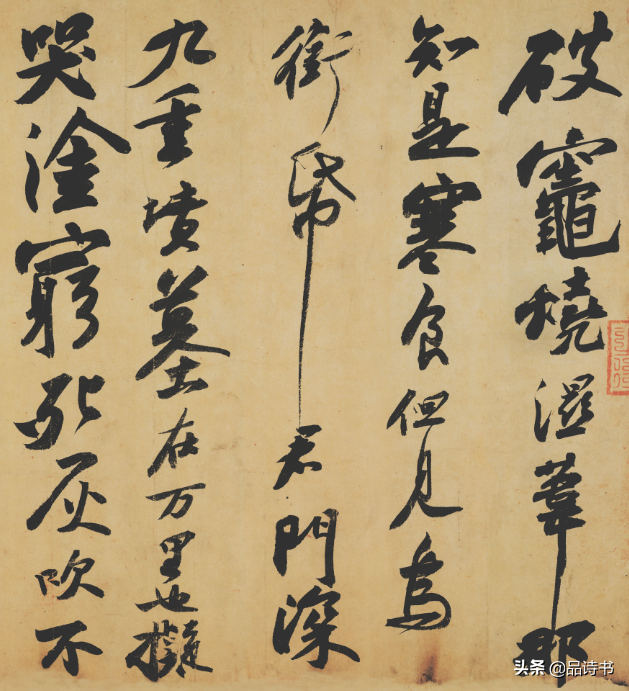 破竈燒濕葦那
知是寒食但見烏
銜帋君門深
九重墳墓在万里也擬
哭塗窮死灰吹不
头条 @品诗书